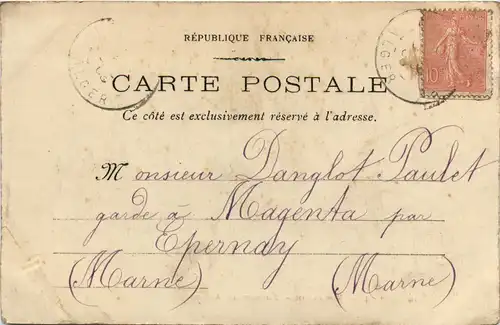 RÉPUBLIQUE FRANÇAISE
CARTE POSTALE
Ce côté est exclusivement réservé à l'adresse.
Monsieur Danglot Paulet
garde à Magenta par
Epernay
(Marne) (Marne)
ALGER
ALGER
10